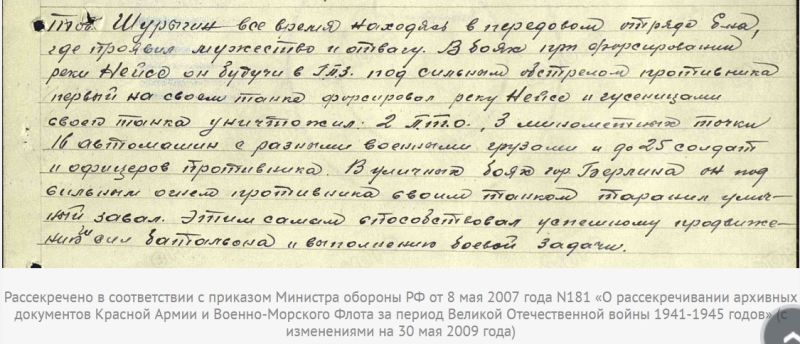 Тов. Шурыгин все время находясь в передовом отряде б-на,
где проявил мужество и отвагу. В боях при форсировании
реки Нейсе он будучи в ГПЗ. под сильным обстрелом противника
первый на своем танке форсировал реку Нейсе и гусеницами
своего танка уничтожил: 2 П.Т.О., 3 минометных точки
16 автомашин с разными военными грузами и до 25 солдат
и офицеров противника. В уличных боях гор. Берлина он под
сильным огнем противника своим танком таранил улич-
ный завал. Этим самым способствовал успешному продвиже-
нию сил батальона и выполнению боевой задачи.
Рассекречено в соответствии с приказом Министра обороны РФ от 8 мая 2007 года N181 «О рассекречивании архивных
документов Красной Армии и Военно-Морского Флота за период Великой Отечественной войны 1941-1945 годов» (с
изменениями на 30 мая 2009 года)